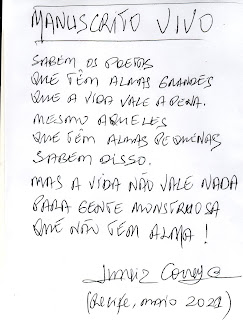 MANUSCRITO VIVO
SABEM OS POETAS
QUE TÊM ALMAS GRANDES
QUE A VIDA VALE A PENA.
MESMO AQUELES
QUE TÊM ALMAS PEQUENAS
SABEM DISSO.
MAS A VIDA NÃO VALE NADA
PARA GENTE MONSTRUOSA
QUE NÃO TEM ALMA!
Juareiz Correya
(Recife, maio 2021)